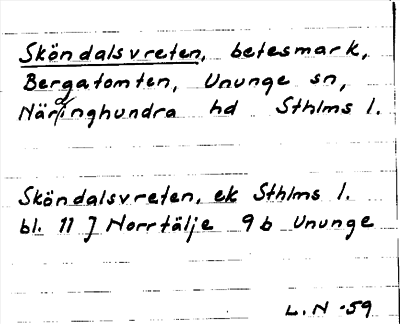 Sköndalsvreten, betesmark,
Bergatomten, Ununge sn,
Närdinghundra hd Sthlms l.
Sköndalsvreten, ek Sthlms l.
bl. 11 J Norrtälje 9b Ununge
L.N -59